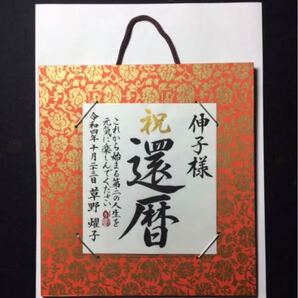 伸子様
祝
還暦
これから始まる第二の人生を
元気に楽しんでください
令和四年十月二十三日 草野 燿子